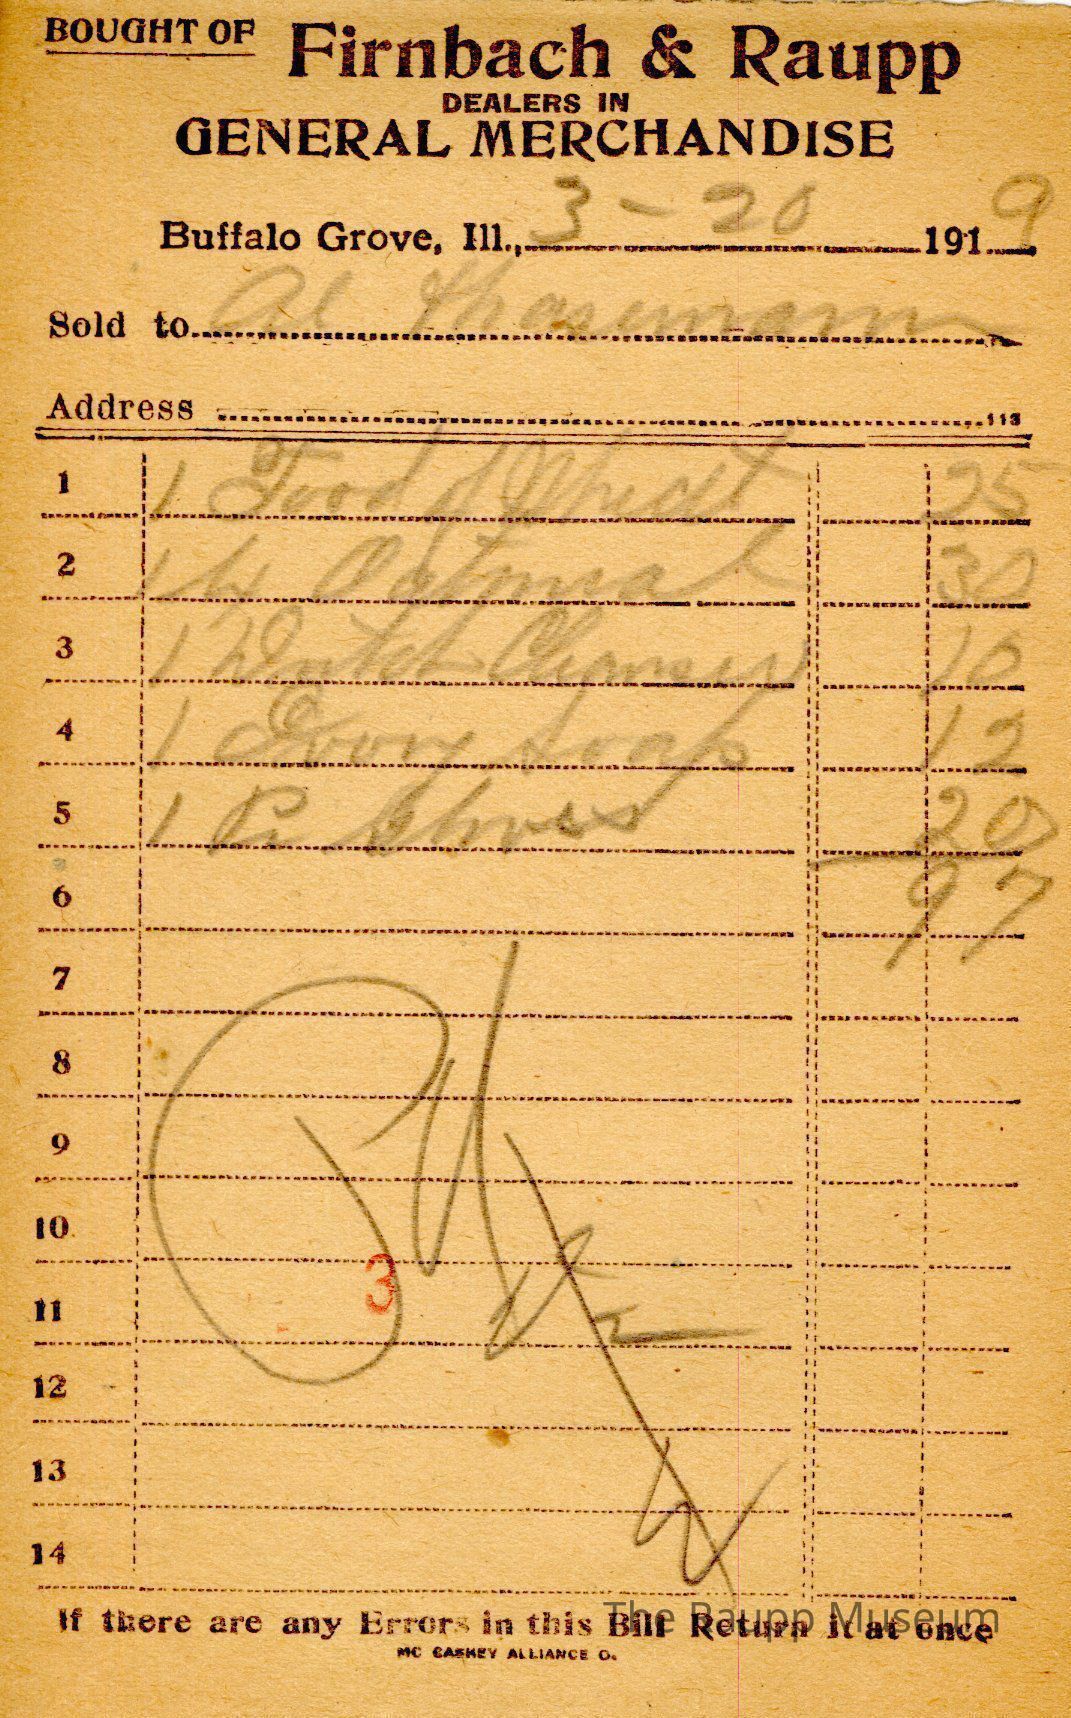 BOUGHT OF Firnbach & Raupp
DEALERS IN
GENERAL MERCHANDISE
Buffalo Grove, Ill., 3-20 1919
Sold to Al
Address 113
1 1 Food of Wheat 25
2 1 Oatmeal 30
3 1 Cleanser 10
4 1 Ivory Soap 12
5 1 Pr 20
6 97
7
8
9
10
3
11
12
13
14
If there are any Errors in this Bill Return it at once
The Raupp Museum
MC CASKEY ALLIANCE O.